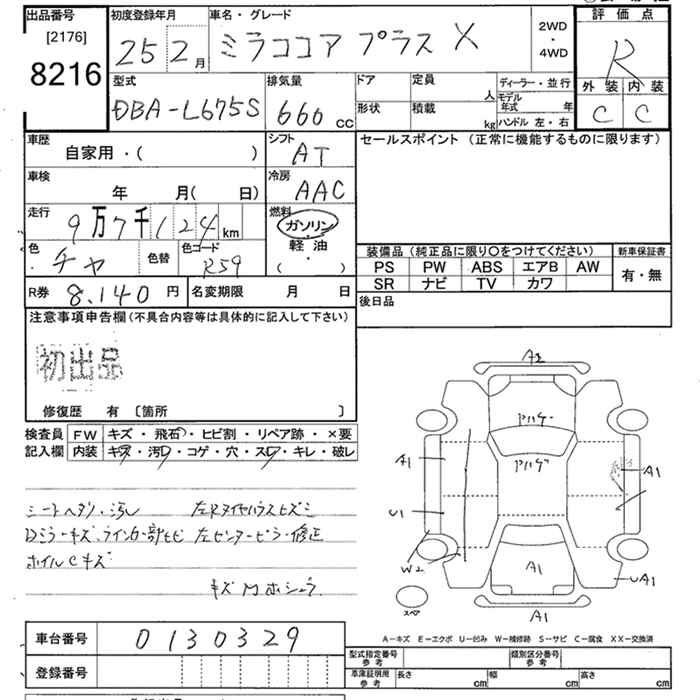 出品番号 初度登録年月 車名・グレード 評価点
[2176] 2WD
8216 25 2月 ミラココア プラス X ・ R
4WD
型式 排気量 ドア 定員 ディーラー・並行 外装 内装
DBA-L675S 660cc 人 モデル年式 年 C C
形状 積載 kg ハンドル 左・右
車歴 シフト セールスポイント (正常に機能するものに限ります)
自家用・( ) AT
車検 冷房
年 月( 日) AAC
走行 燃料
9万7千124km ガソリン
軽油
色 色替 色コード ( ) 装備品(純正品に限り○をつけてください) 新車保証書
チャ R59 PS PW ABS エアB AW 有・無
SR ナビ TV カワ
R券 8,140円 名変期限 月 日 後日品
注意事項申告欄(不具合内容等は具体的に記入して下さい)
初出品
修復歴 有 〔箇所 〕
検査員 FW キズ・飛石・ヒビ割・リペア跡・×要
記入欄 内装 キズ・汚レ・コゲ・穴・スレ・キレ・破レ
シートヘタリ・汚レ 左Rタイヤハウスヒズミ
Dミラーキズ 左センターピラー修正
ホイルCキズ
A2
A1
U1
W2
A1
A1
UA1
スペア
A1
A-キズ E-エクボ U-凹み W-補修跡 S-サビ C-腐食 XX-交換済
車台番号 0130329 型式指定番号 参考 類別区分番号 参考
登録番号 車庫証明用 参考 長さ cm 幅 cm 高さ cm